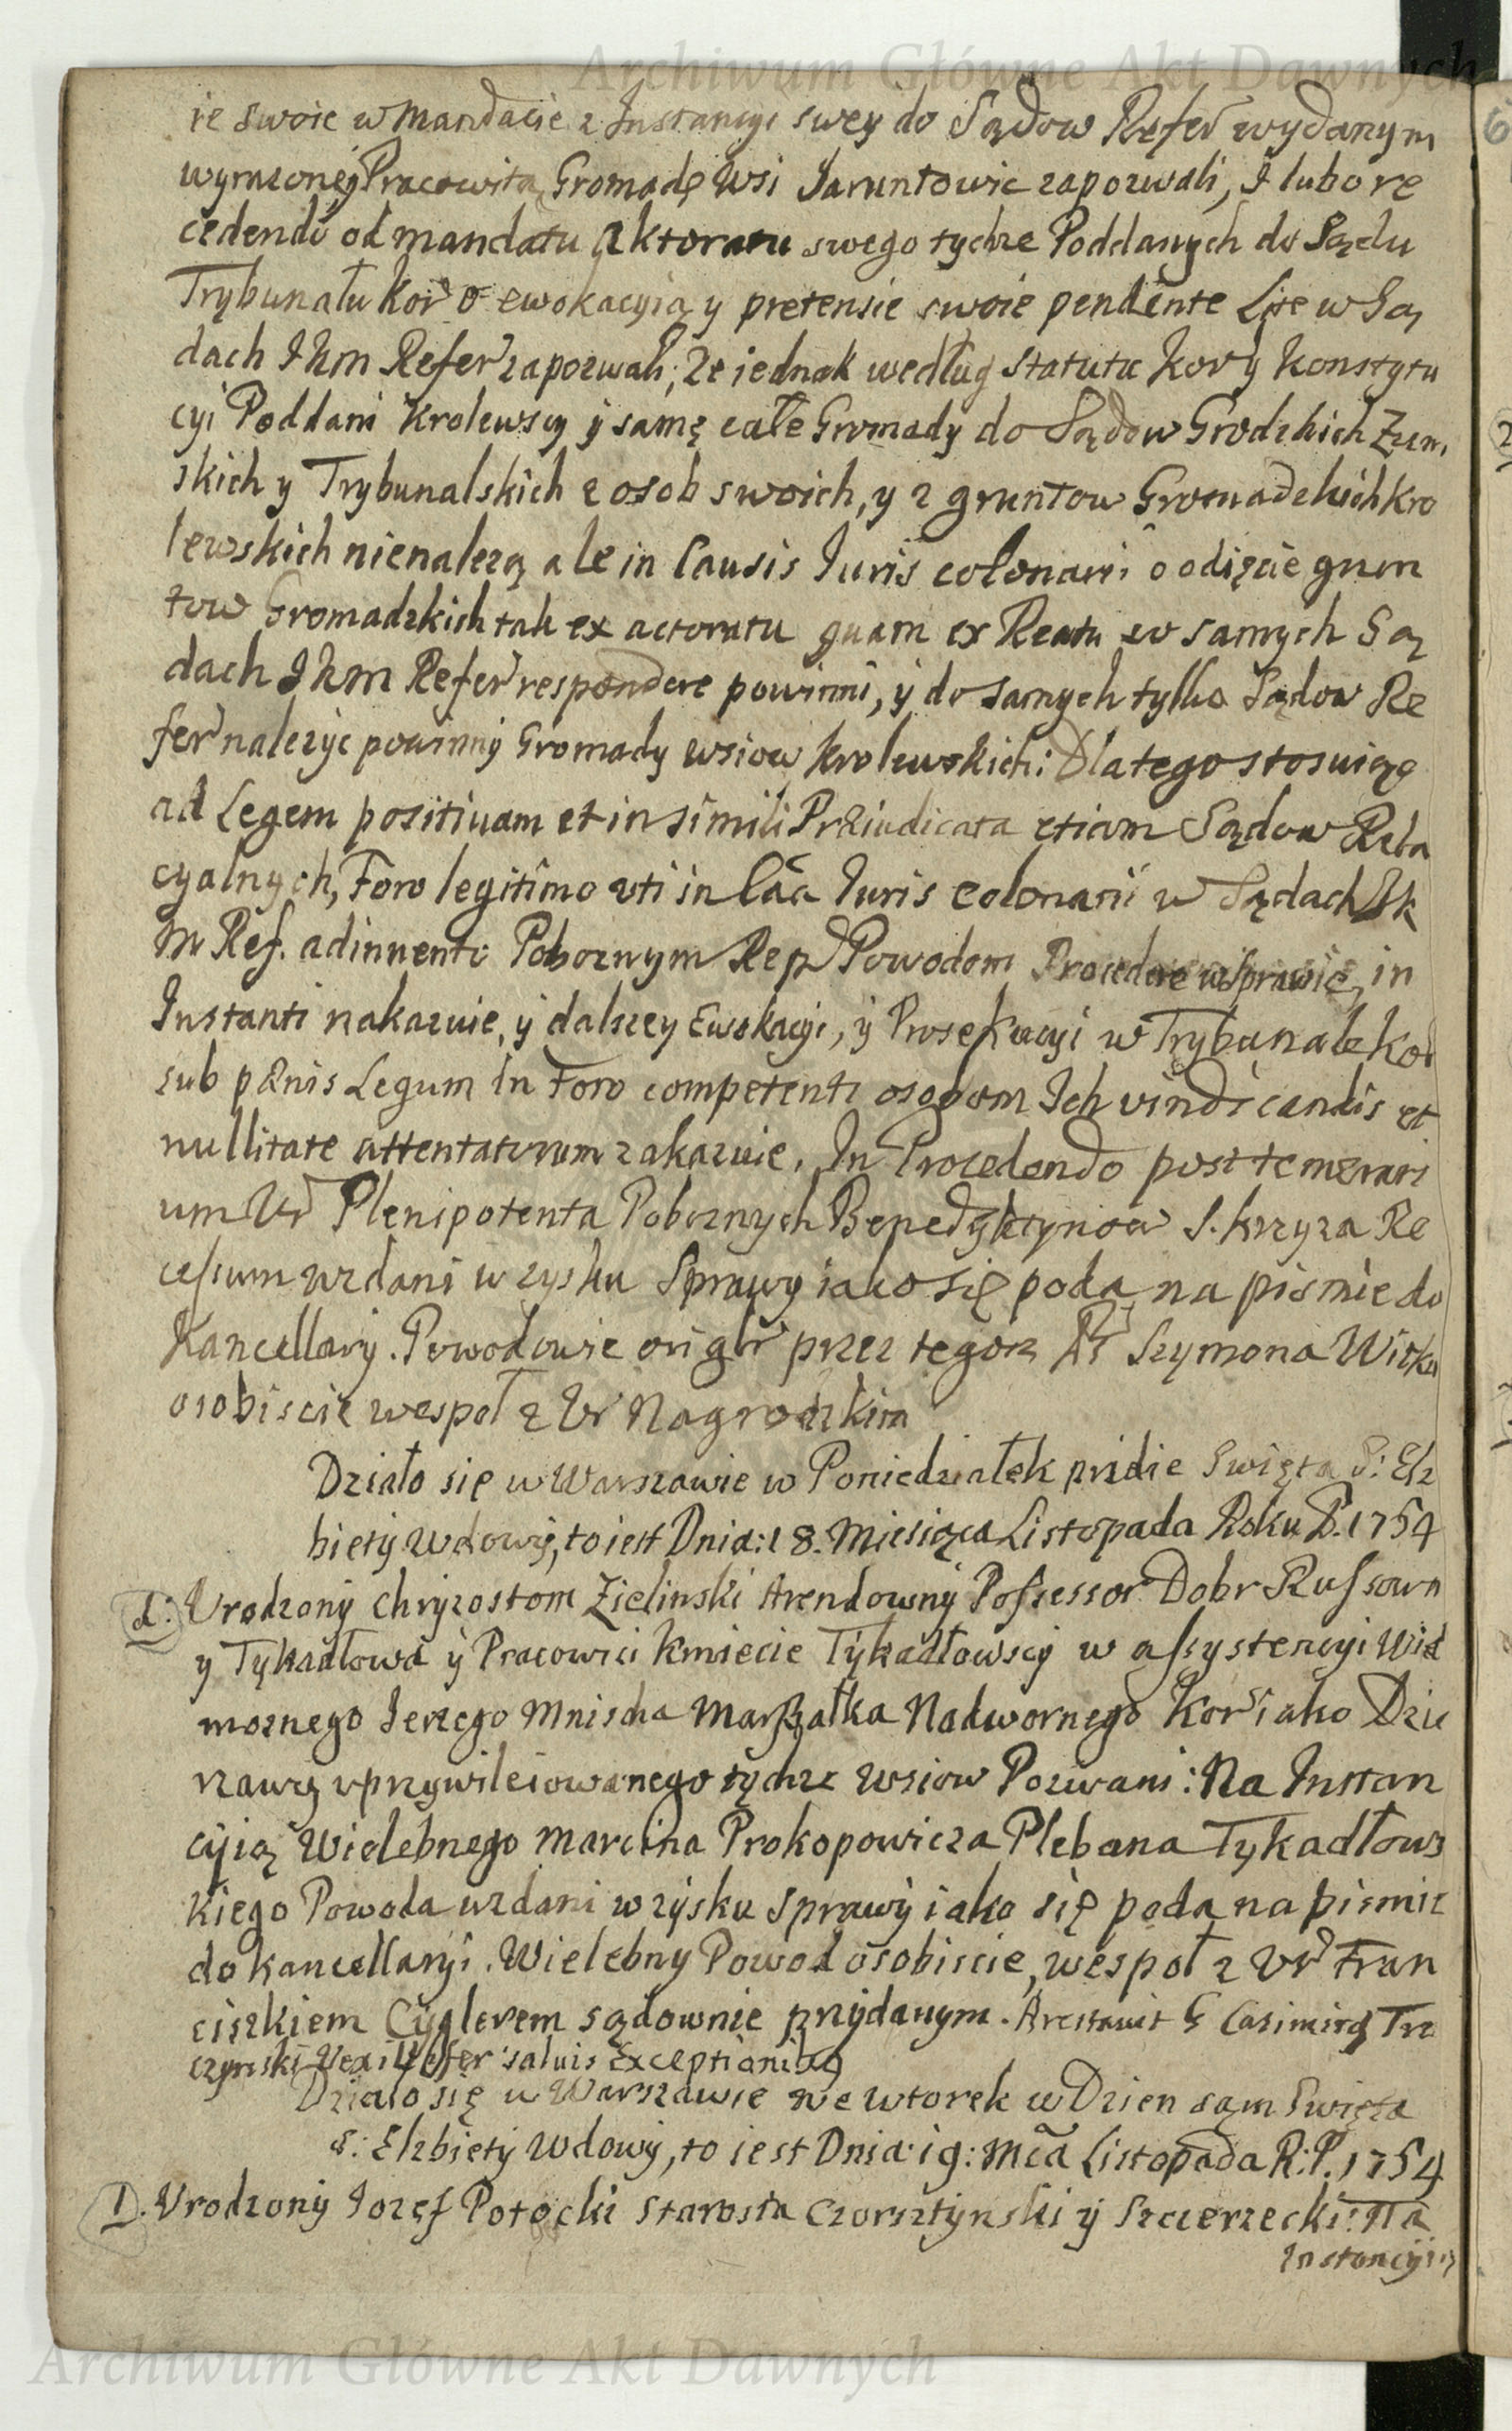 Archiwum Główne Akt Dawnych
ie swoie w Mandacie z Instancyi swey do Sądow Refer wydanym
wyrazoney Pracowitą Gromadę Wsi Jaruntowic zapozwali, I lubo re
cedendo od mandatu Aktoratu swego tychze Poddanych do Sądu
Trybunału Kor o ewokacyią y pretensie swoie pendente Lite w Są
dach JKm Refer zapozwali; Ze iednak według Statutu Kor y Konstytu
cyi Poddani Krolewscy y samę całe Gromady do Sądow Grodzkich Ziem
skich y Trybunalskich z osob swoich, y z gruntow Gromadzkich Kro
lewskich nienalezą ale in Causis Iuris colonarii o odięcie grun
tow Gromadzkich tak ex actoratu quam ex Reatu w samych Są
dach JKm Refer respondere powinni, y do samych tylko Sądow Re
fer nalezyc powinny Gromady wsiow Krolewskich: Dlatego stosuiąc
ad Legem positivam et in simili Præiudicata etiam Sądow Rela
cyalnych, Foro legitimo uti in Cãa Iuris colonarii w Sądach JK
M Ref. adinvento Poboznym Rep Powodom Procedere w Sprawie, in
Instanti nakazuie, y dalszey Ewokacyi, y Prosekucyi w Trybunale Kor
sub pænis Legum in Foro competenti osobom Ich vindicandis et
nullitate attentatorum zakazuie. In Procedendo post temerari
um Ur Plenipotenta Poboznych Benedyktynow S. Krzyza Re
cessum wzdani w zysku Sprawy iako się poda na pismie do
Kancellaryi. Powodowie origlr przez tegoz Szymona
osobiscie wespoł z Ur Nagrodzkim
Działo się w Warszawie w Poniedziałek pridie Swięta S: Elz
biety Wdowy, to iest Dnia: 18. Miesiąca Listopada Roku P. 1754
1: Urodzony Chryzostom Zielinski Arendowny Possessor Dobr Russowa
y Tykadłowa y Pracowici Kmiecie Tykadłowscy w assystencyi Wiel
moznego Jerzego Mniszcha Marszałka Nadwornego Kor iako Dzier
zawcy uprzywileiowanego tychze wsiow Pozwani: Na Instan
cyią Wielebnego Marcina Prokopowicza Plebana Tykadłows
kiego Powoda wzdani w zysku Sprawy iako się poda na pismie
do Kancellaryi. Wielebny Powod osobiscie, wespoł z Ur Fran
ciszkiem Cyglerem sądownie przydanym. Arestavit G Casimirq Trz
czynski Vexillifer salvis Exceptionibq
Działo się w Warszawie we wtorek w Dzien sam Swięta
S: Elzbiety Wdowy, to iest Dnia: 19: Mca Listopada R:P. 1754
1. Urodzony Jozef Potocki Starosta Czorsztynski y Szczerzecki: Na
Instancyią
Archiwum Główne Akt Dawnych